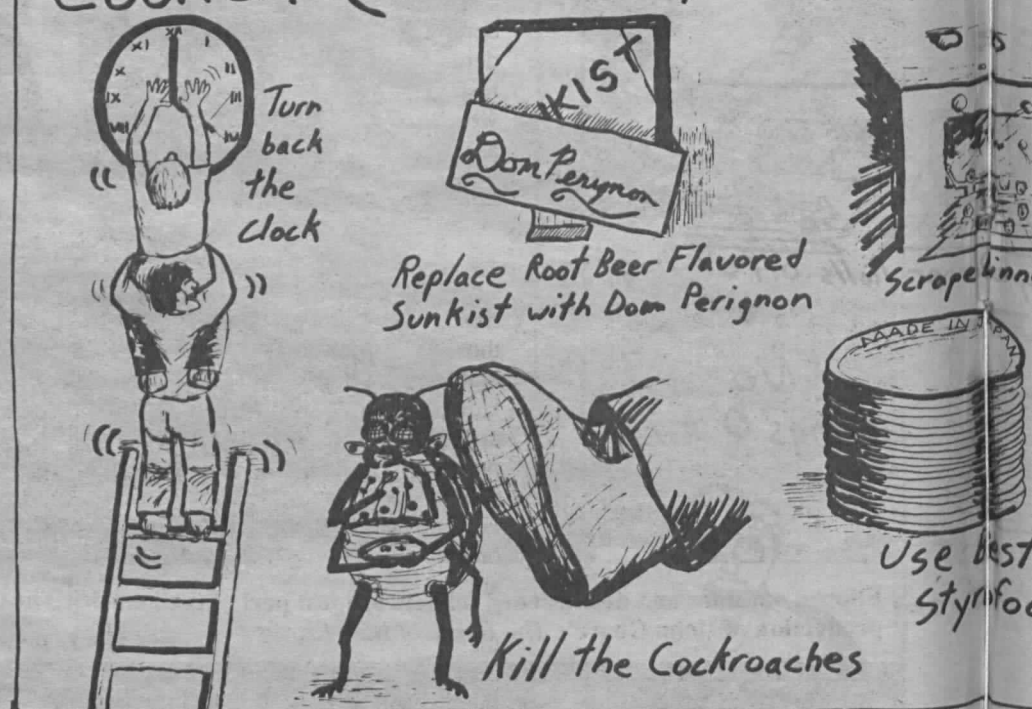 XI
XII
I
X
II
IX
III
Turn
back
the
Clock
KIST
Dom Perignon
Replace Root Beer Flavored
Sunkist with Dom Perignon
MADE IN JAPAN
Use best
Kill the Cockroaches